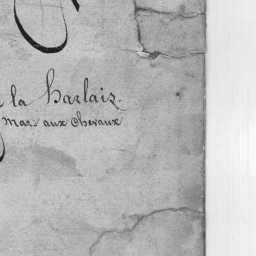 la Harlais.
Mar. aux Chevaux